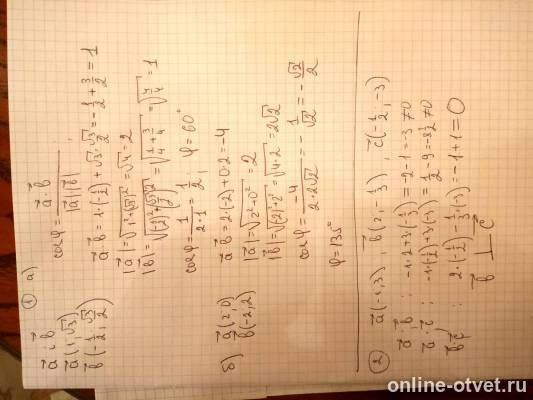 ① a)
a⃗ ; b⃗
a⃗ (1, √3)
b⃗ (-1/2, √3/2)
cosφ = a⃗·b⃗ / |a⃗||b⃗|
a⃗·b⃗ = 1·(-1/2) + √3·√3/2 = -1/2 + 3/2 = 1
|a⃗| = √(1²+(√3)²) = √4 = 2
|b⃗| = √((1/2)²+(√3/2)²) = √(1/4 + 3/4) = √(4/4) = 1
cosφ = 1/(2·1) = 1/2 ; φ = 60°
б) a⃗ (2; 0)
b⃗ (-2; 2)
a⃗·b⃗ = 2·(-2) + 0·2 = -4
|a⃗| = √(2²+0²) = 2
|b⃗| = √((2)²+2²) = √(4·2) = 2√2
cosφ = -4/(2·2√2) = -1/√2 = -√2/2
φ = 135°
② a⃗ (-1, 3) , b⃗ (2, -1/3) , c⃗ (-1/2, -3)
a⃗; b⃗ : -1·2+3·(-1/3) = -2-1 = -3 ≠0
a⃗; c⃗ : -1·(-1/2)+3·(-3) = 1/2 -9 = -8 1/2 ≠0
b⃗·c⃗ : 2·(-1/2) - 1/3·(-3) = -1+1 = 0
b⃗ ⊥ c⃗
online-otvet.ru